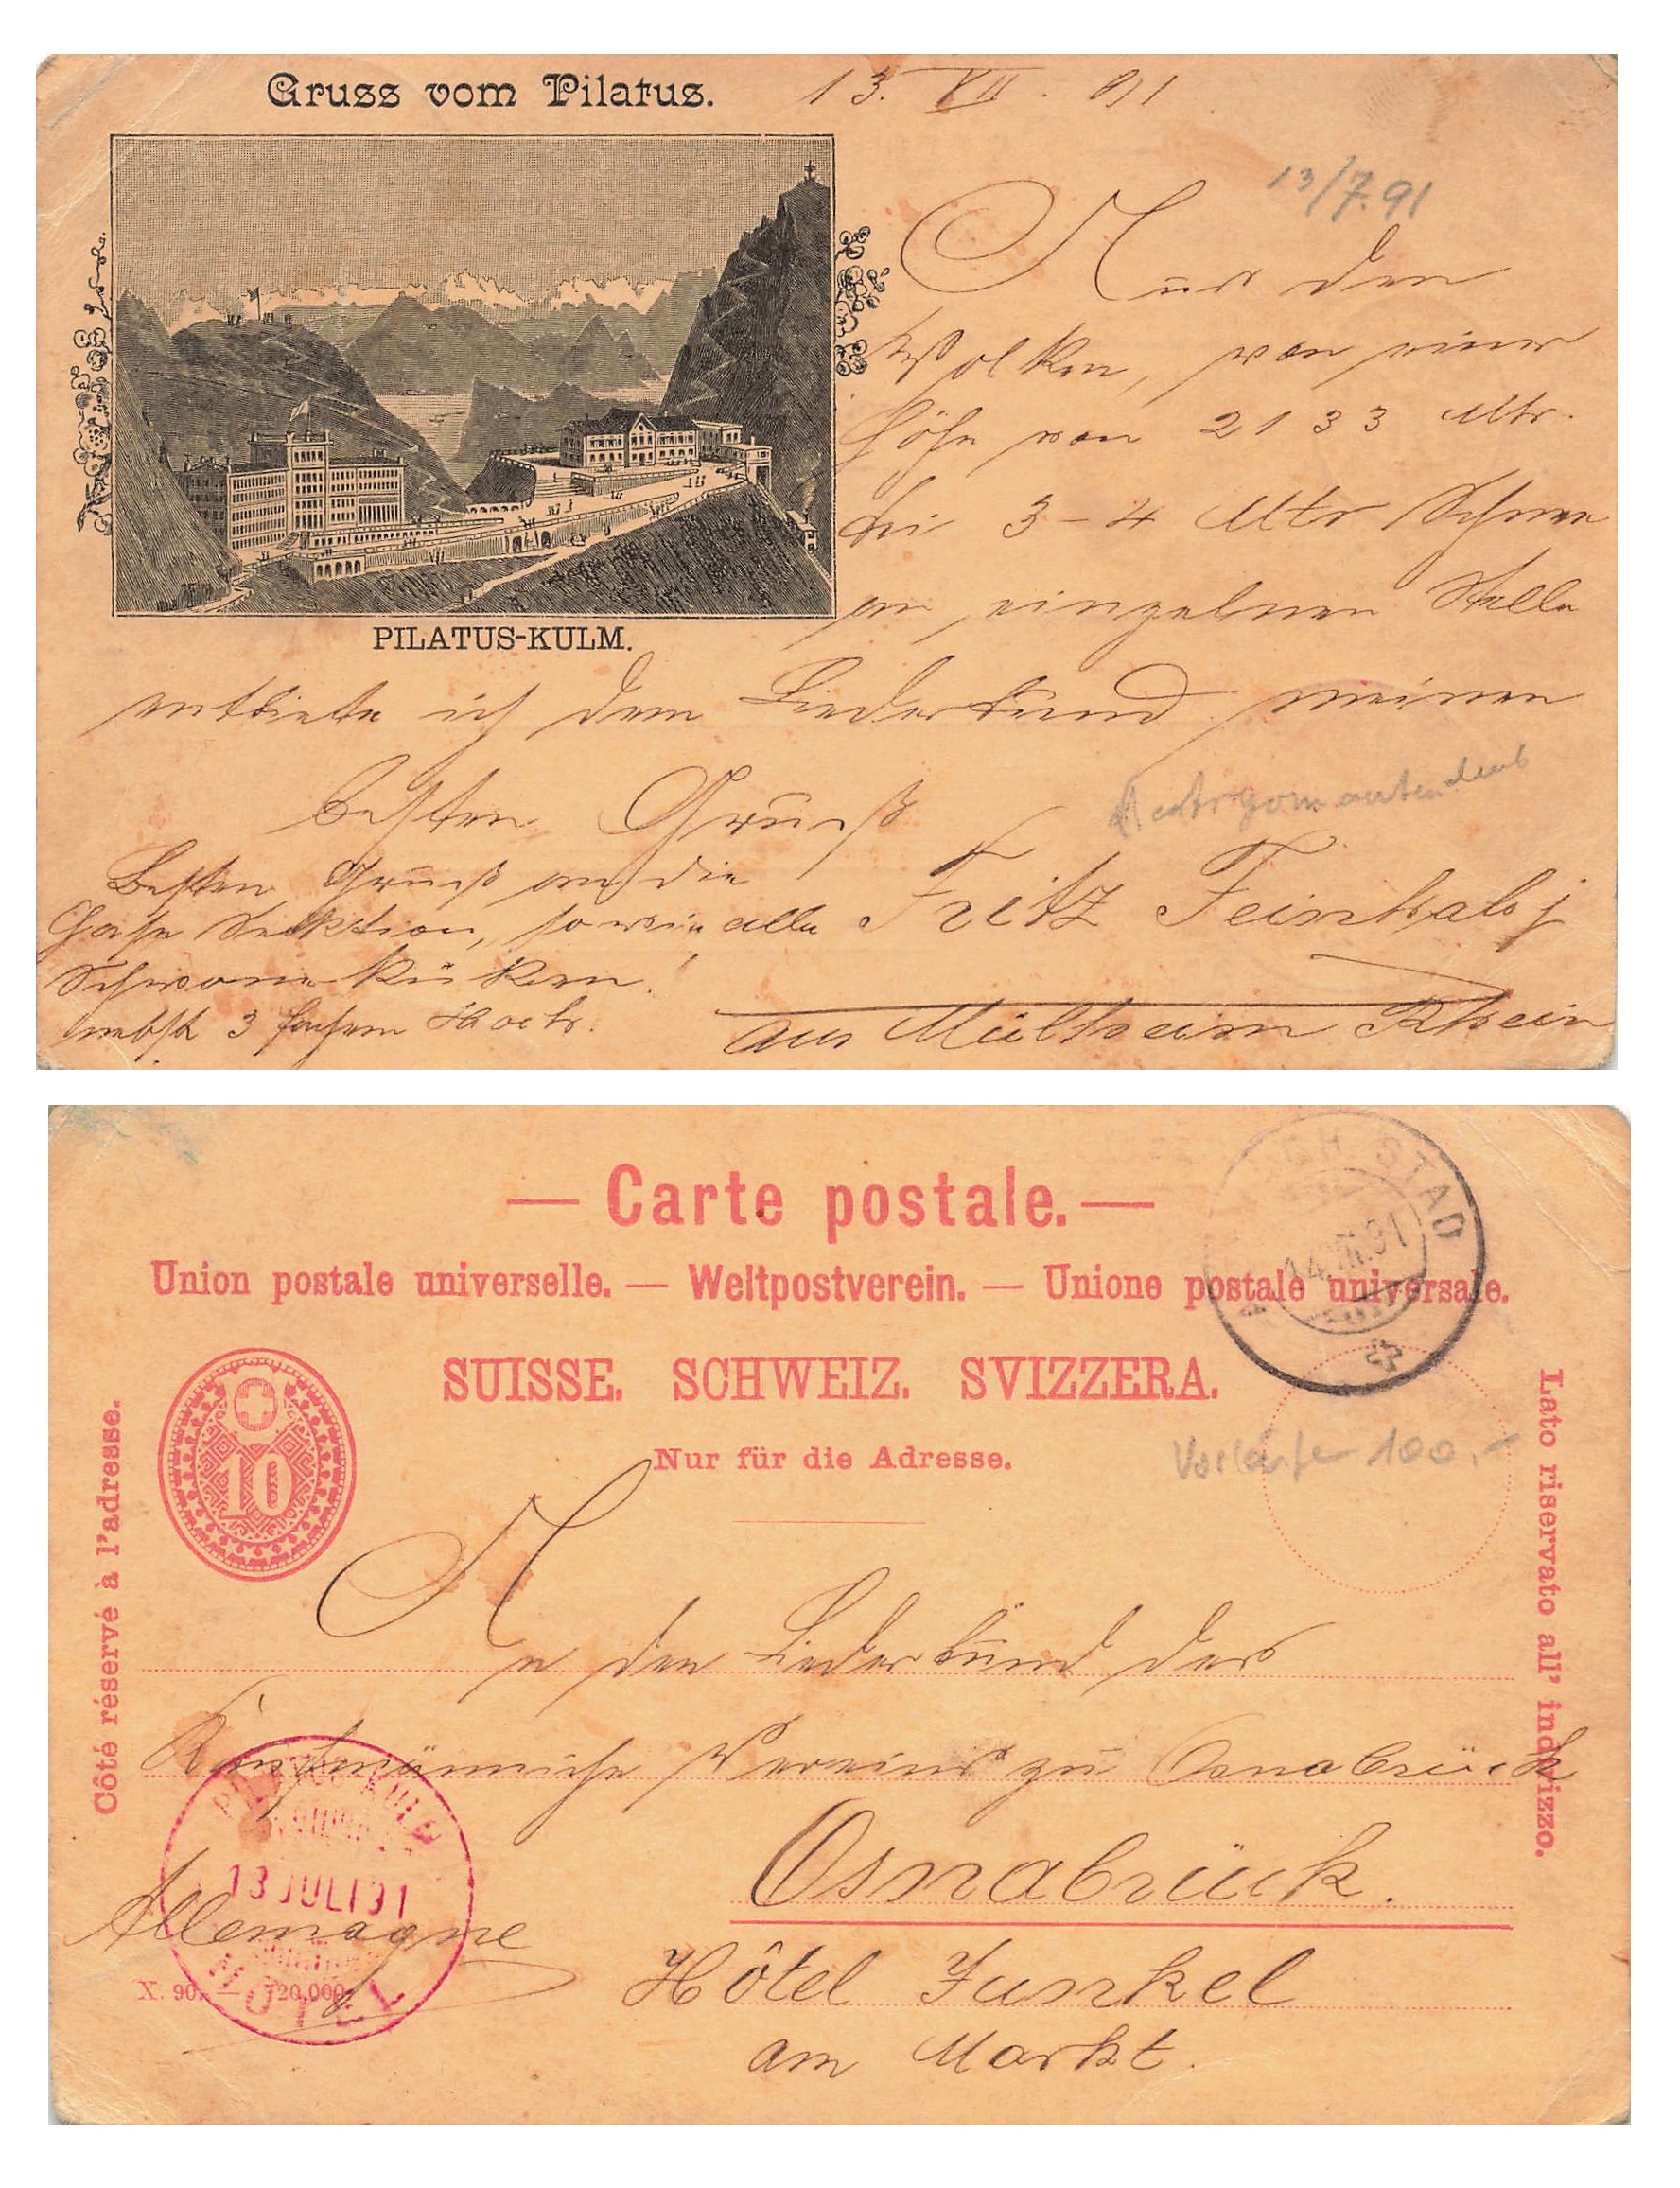 Gruss vom Pilatus. 13. VII. 91
13/7.91
Aus den
Wolken, von einer
Höhe von 2133 Mtr.
bei 3-4 Mtr Schnee
an einzelnen Stelle
PILATUS-KULM.
entbiete ich dem Liederbund meinen
besten Gruß
Besten Gruß an die
hohe Sektion, sowie alle
nebst 3 fachem Hoch.
Fritz
aus Mülheim Rhein
— Carte postale. —
Union postale universelle. — Weltpostverein. — Unione postale universale.
SUISSE. SCHWEIZ. SVIZZERA.
Nur für die Adresse.
Côté réservé à l'adresse.
Lato riservato all' indirizzo.
10
STAD
14.VII.91
Vorläufer 100,-
An den Liederbund des
Kaufmännische Vereins zu Osnabrück
Osnabrück.
Hôtel Funkel
am Markt.
Allemagne
13 JULI 91
HOTEL
X. 90. — 720,000